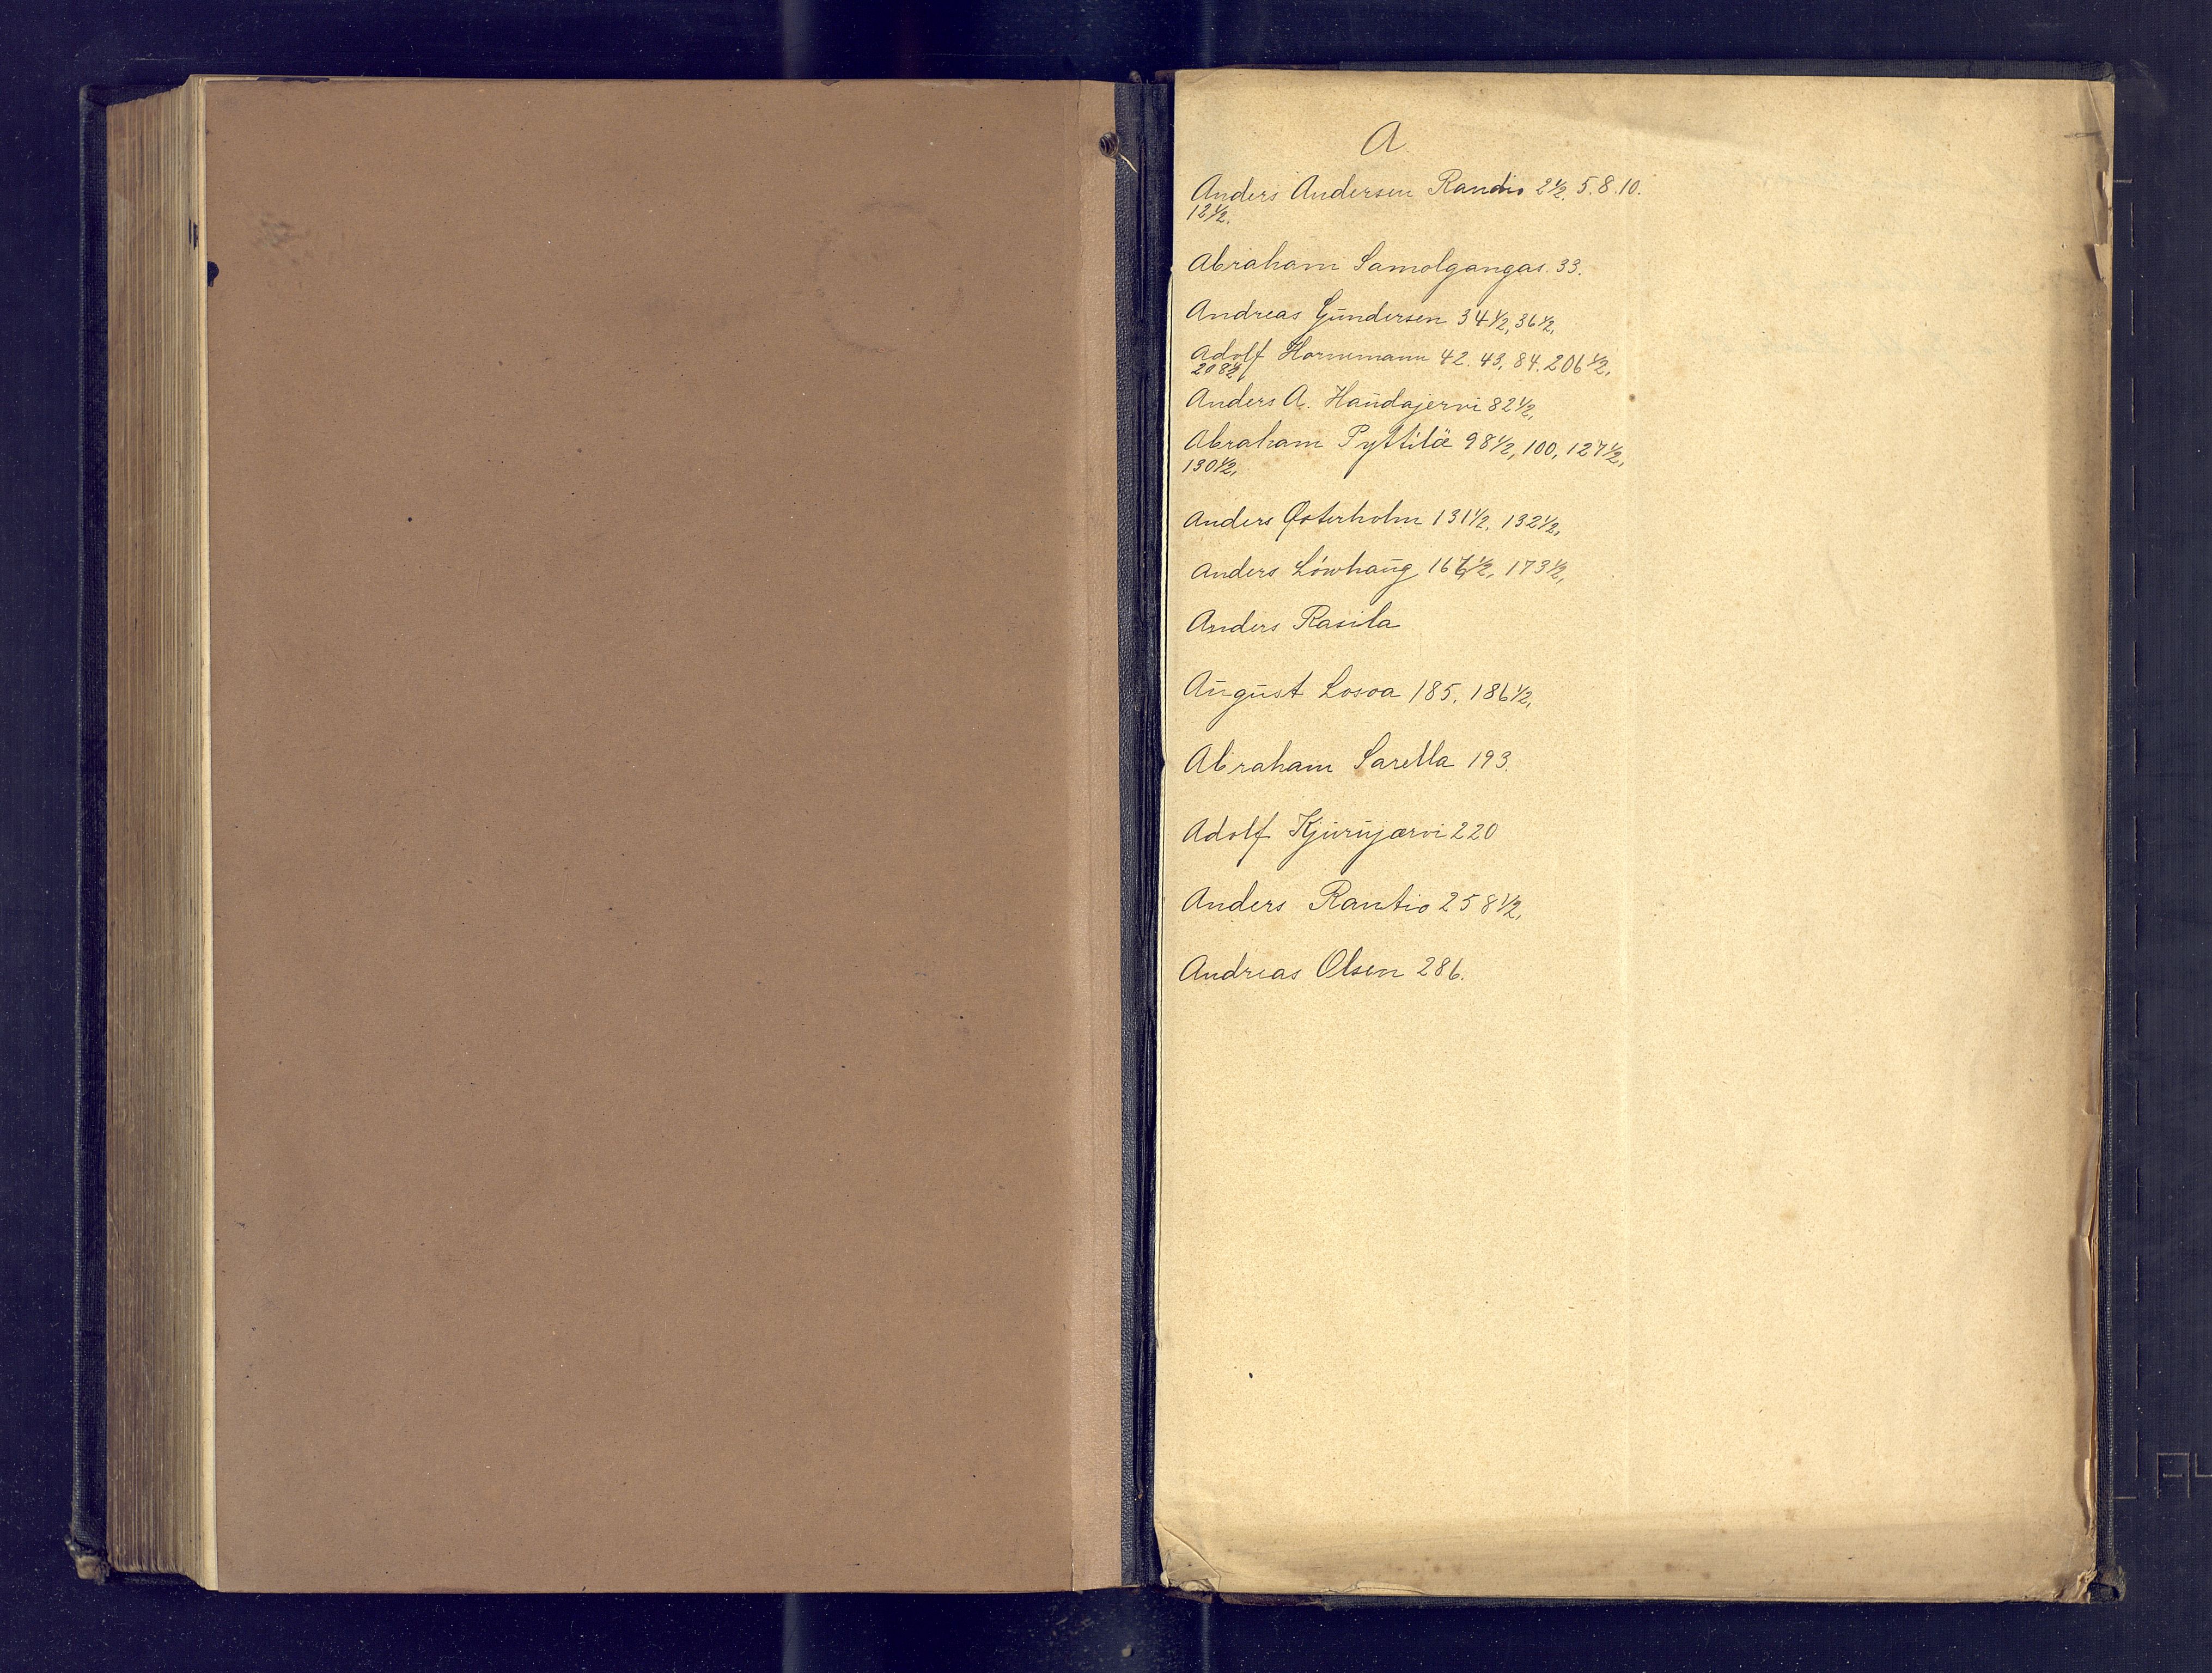 A
Anders Andersen Randio 2½. 5. 8. 10.
12½.
Abraham Samolgangas. 33.
Andreas Gundersen 34½, 36½,
Adolf Hornemann 42. 43, 84. 206½,
208½
Anders A. Haudajervi 82½,
Abraham Pyttilä 98½, 100, 127½,
130½,
Anders Østerholm 131½, 132½,
Anders Lövhaug ½, 173½,
Anders Rasila
August Losoa 185, 186½,
Abraham Sarella 193.
Adolf Kjurujærvi 220
Anders Rantio 258½,
Andreas Olsen 286.